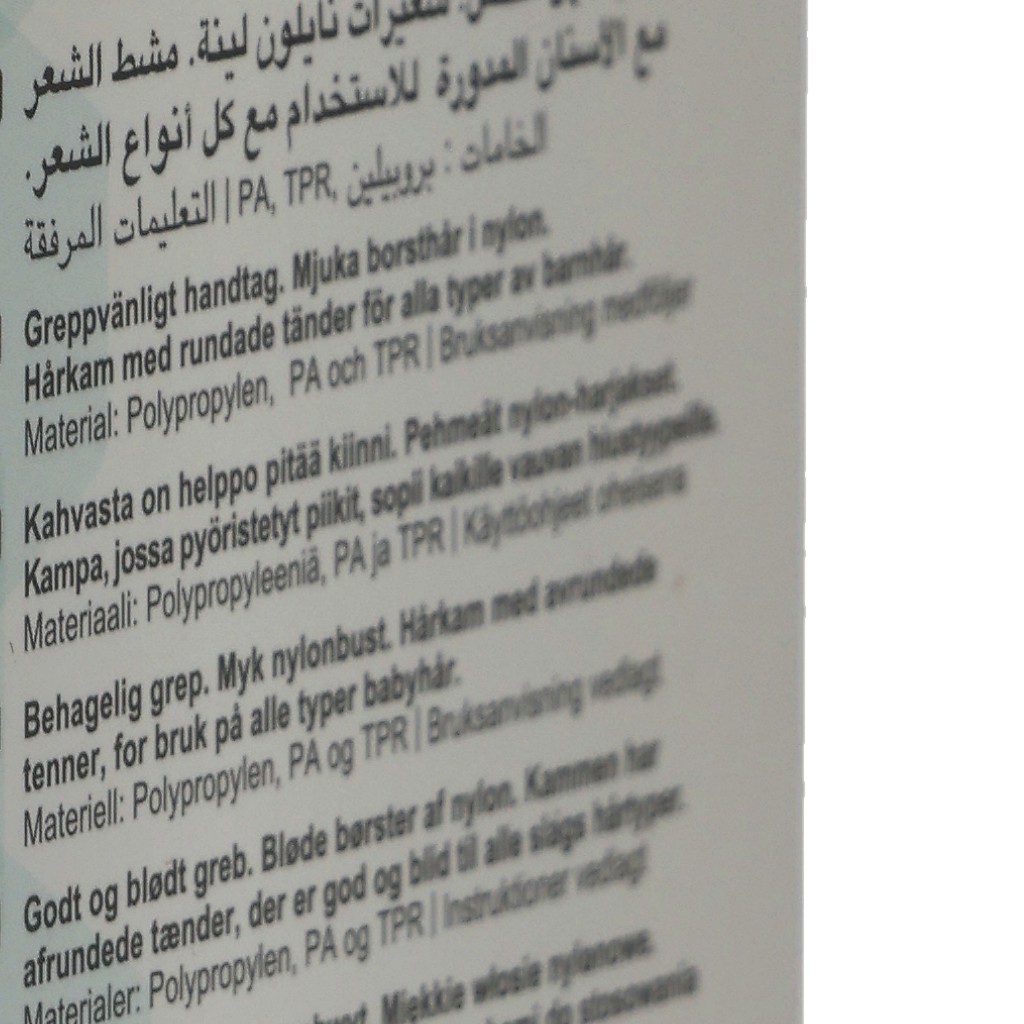 شعيرات نايلون لينة. مشط الشعر
مع الأسنان المدورة للاستخدام مع كل أنواع الشعر.
الخامات : بروبيلين, PA, TPR | التعليمات المرفقة
Greppvänligt handtag. Mjuka borsthår i nylon.
Hårkam med rundade tänder för alla typer av barnhår.
Material: Polypropylen, PA och TPR | Bruksanvisning medföljer
Kahvasta on helppo pitää kiinni. Pehmeät nylon-harjakset.
Kampa, jossa pyöristetyt piikit, sopii kaikille vauvan hiustyypeille.
Materiaali: Polypropyleeniä, PA ja TPR | Käyttöohjeet oheisena
Behagelig grep. Myk nylonbust. Hårkam med avrundede
tenner, for bruk på alle typer babyhår.
Materiell: Polypropylen, PA og TPR | Bruksanvisning vedlagt
Godt og blødt greb. Bløde børster af nylon. Kammen har
afrundede tænder, der er god og blid til alle slags hårtyper.
Materialer: Polypropylen, PA og TPR | Instruktioner vedlagt
Miękkie włosie nylonowe.
do stosowania